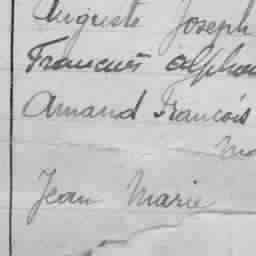 Auguste Joseph
Francois Alphon
Amand Francois
Ma
Jean Marie